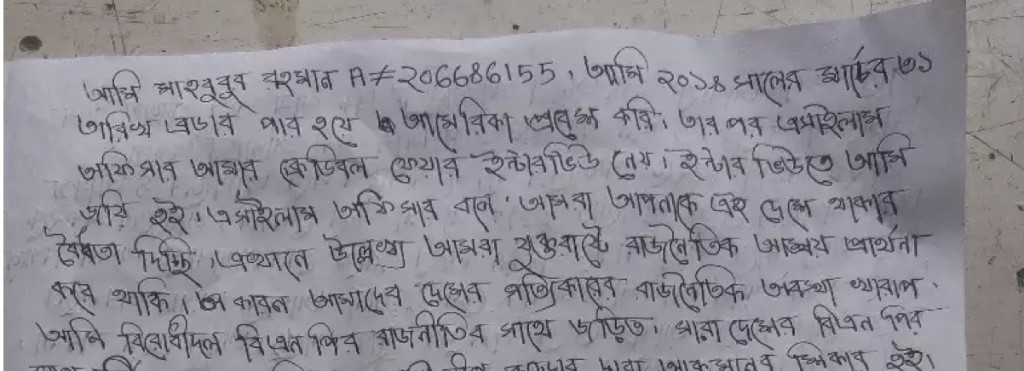 আমি মাহবুবুর রহমান A≠206686155, আমি ২০১৪ সালের মার্চের ৩১
তারিখ বর্ডার পার হয়ে আমেরিকা প্রবেশ করি। তার পর এসাইলাম
অফিসার আমার ক্রেডিবল ফেয়ার ইন্টারভিউ নেয়। ইন্টার ভিউতে আমি
জয়ি হই। এসাইলাম অফিসার বলে, আমরা আপনাকে এই দেশে থাকার
বৈধতা দিচ্ছি। এখানে উল্লেখ্য আমরা যুক্তরাষ্ট্রে রাজনৈতিক আশ্রয় প্রার্থনা
করে থাকি। কারন আমাদের দেশের সত্যিকারের রাজনৈতিক অবস্থা খারাপ।
আমি বিরোধীদল বিএন পির রাজনীতির সাথে জড়িত। সারা দেশের বিএন পির
দ্বারা আক্রমনের শিকার হই।